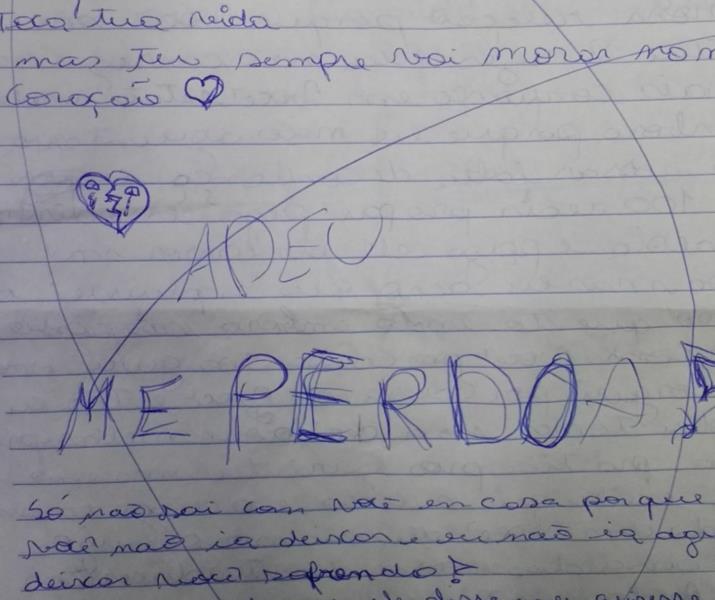 Toca tua vida
mas tu sempre vai morar no m
Coração
ADEU
ME PERDOA
Só não sai com você en casa porque
você não ia deixar e eu não ia agu
deixar você sofrendo!